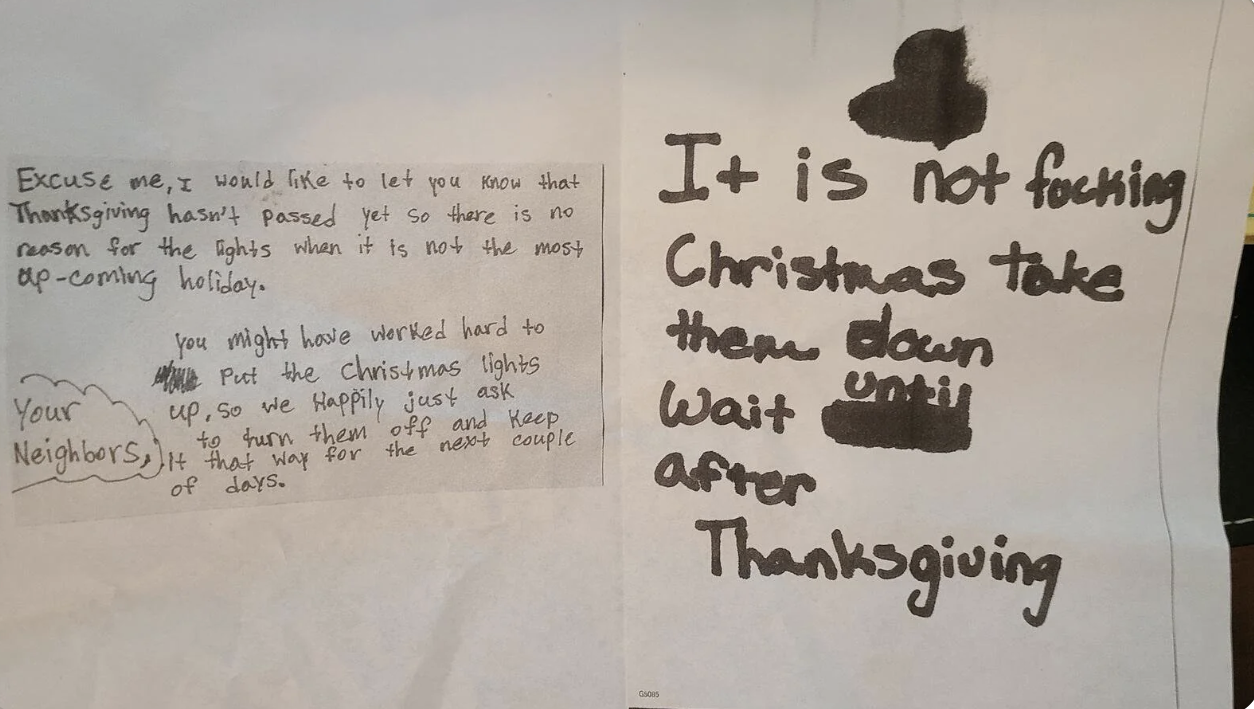 Excuse me, I would like to let you know that
Thanksgiving hasn't passed yet so there is no
reason for the lights when it is not the most
up-coming holiday.
you might have worked hard to
put the Christmas lights
up, so we Happily just ask
to turn them off and keep
it that way for the next couple
of days.
Your
Neighbors,
It is not focking
Christmas take
them down
Wait until
after
Thanksgiving
G5085